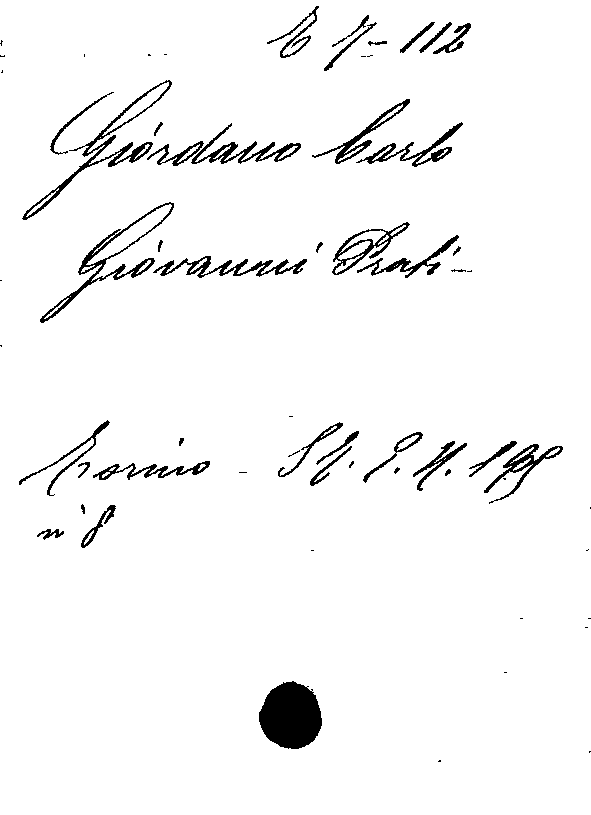 E 7-112
Giordano Carlo
Giovanni Prati-
Torino - S.
n° 8